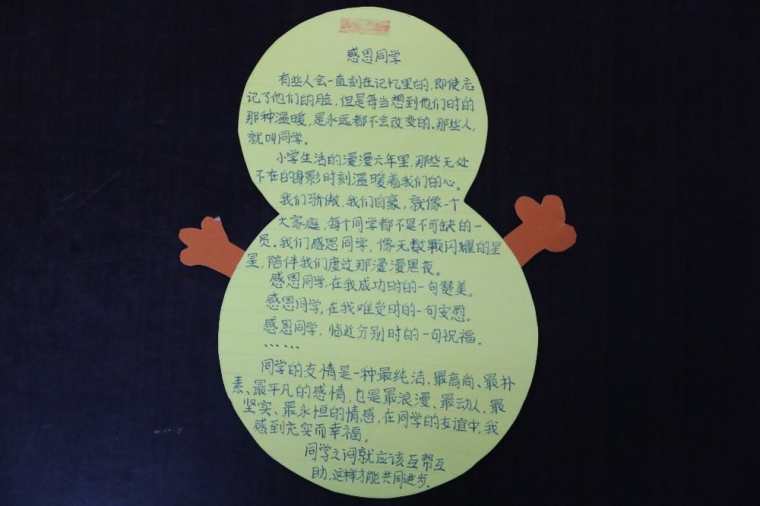 感恩同学
有些人会一直刻在记忆里的，即使忘
记了他们的脸，但是每当想到他们时的
那种温暖，是永远都不会改变的。那些人，
就叫同学。
小学生活的漫漫六年里，那些无处
不在的身影时刻温暖着我们的心。
我们骄傲，我们自豪，就像一个
大家庭，每个同学都不是不可缺的一
员。我们感恩同学，像无数颗闪耀的星
星，陪伴我们度过那漫漫黑夜。
感恩同学，在我成功时的一句赞美。
感恩同学，在我难受时的一句安慰。
感恩同学，临近分别时的一句祝福。
……
同学的友情是一种最纯洁、最高尚、最朴
素、最平凡的感情，也是最浪漫、最动人、最
坚实、最永恒的情感，在同学的友谊中，我
感到充实而幸福。
同学之间就应该互帮互
助，这样才能共同进步。